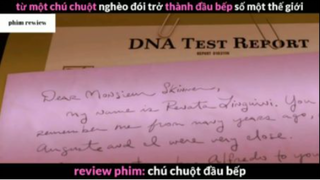 từ một chú chuột nghèo đói trở thành đầu bếp số một thế giới
phim review
DNA TEST REPORT
Dear Monsieur Skinner,
my name is Renata Linguini. You
remember me from many years ago,
Auguste and I were very close.
Alfredo to you
review phim: chú chuột đầu bếp